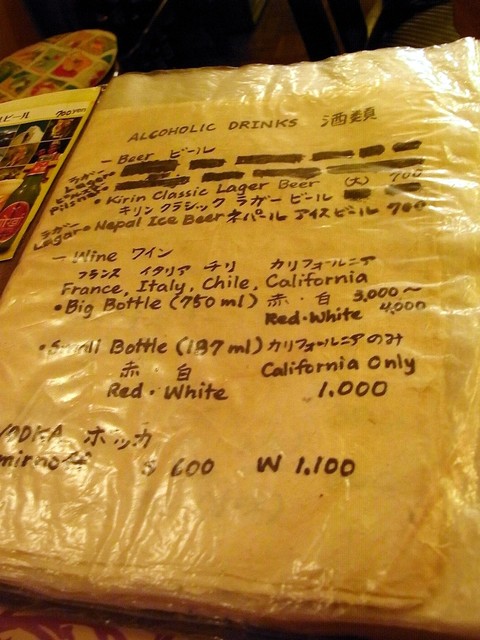 ビール 700yen
ALCOHOLIC DRINKS 酒類
- Beer ビール
ラガー
Lager
Pilsner • Kirin Classic Lager Beer (大) 700
キリン クラシック ラガー ビール
ラガー
Lagar • Nepal Ice Beer ネパール アイスビール 700
- Wine ワイン
フランス イタリア チリ カリフォールニア
France, Italy, Chile, California
• Big Bottle (750 ml) 赤・白 3,000～
Red・White 4,000
• Small Bottle (187 ml) カリフォールニアのみ
赤・白 California Only
Red・White 1,000
VODKA ホッカ
mirnoff S 600 W 1,100